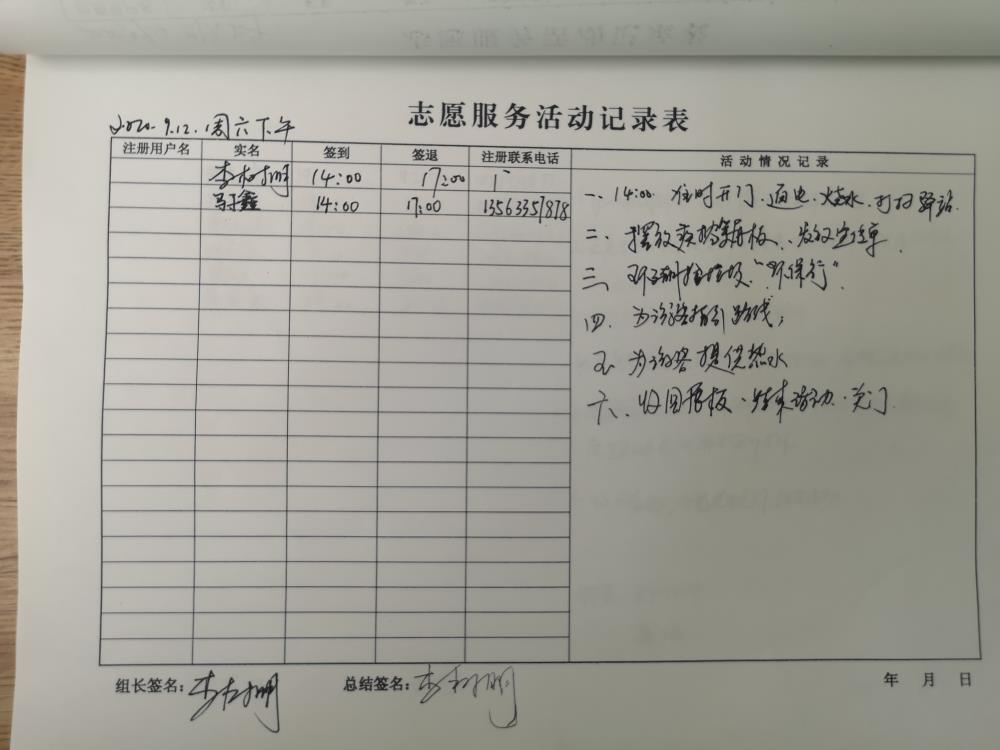 志愿服务活动记录表
2020.9.12.周六下午
注册用户名 实名 签到 签退 注册联系电话 活动情况记录
14:00 17:00
14:00 17:00 13563357878
一、14:00 准时开门、通电、烧水、打扫驿站.
二、摆放 展板、发放宣传单
三、 垃圾"环保行"
四、为游客指引路线;
五、为游客提供热水
六、收回展板、结束活动、关门
组长签名: 总结签名: 年 月 日